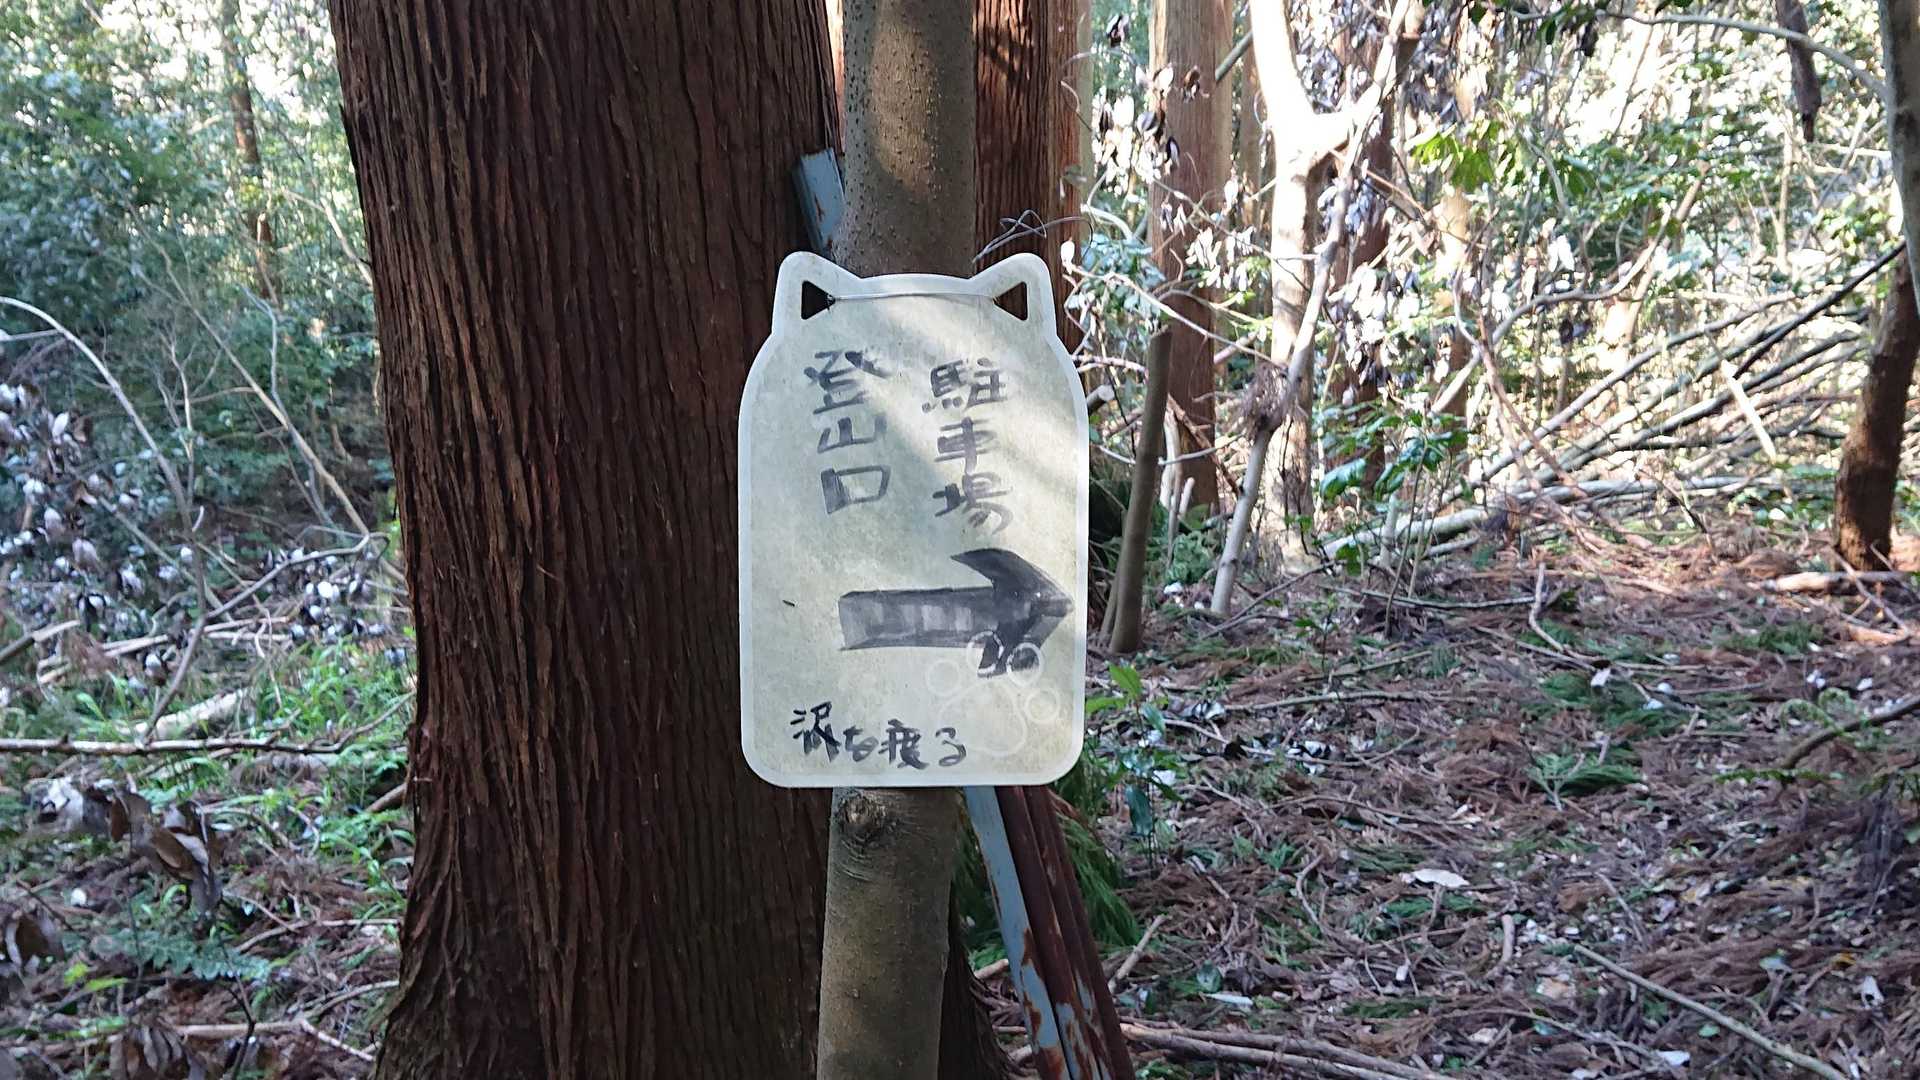 駐車場
登山口
沢を渡る